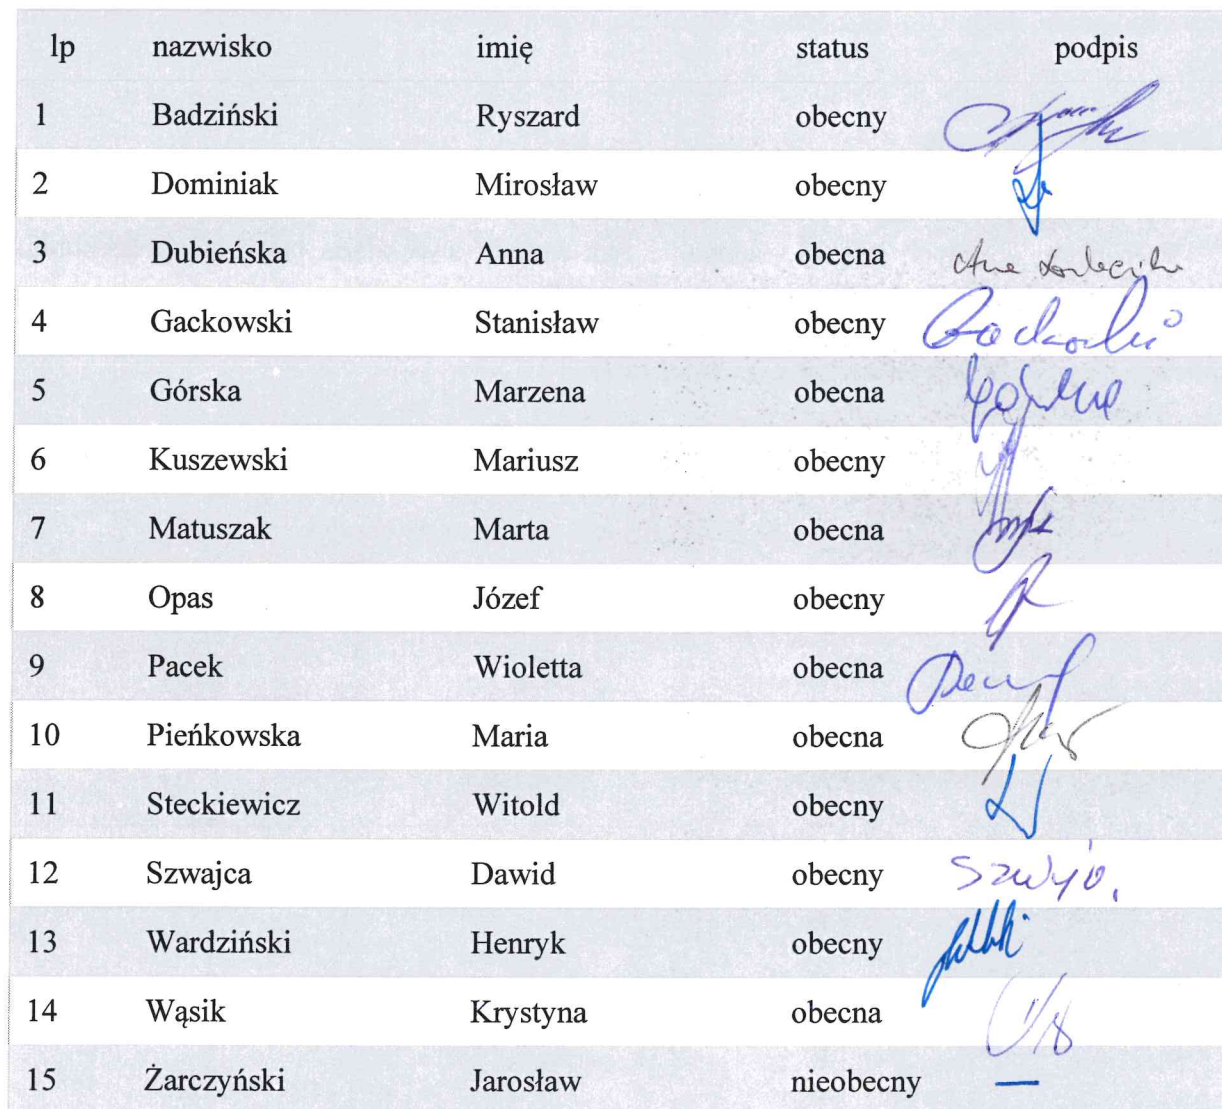 lp nazwisko imię status podpis
1 Badziński Ryszard obecny
2 Dominiak Mirosław obecny
3 Dubieńska Anna obecna
4 Gackowski Stanisław obecny
5 Górska Marzena obecna
6 Kuszewski Mariusz obecny
7 Matuszak Marta obecna
8 Opas Józef obecny
9 Pacek Wioletta obecna
10 Pieńkowska Maria obecna
11 Steckiewicz Witold obecny
12 Szwajca Dawid obecny
13 Wardziński Henryk obecny
14 Wąsik Krystyna obecna
15 Żarczyński Jarosław nieobecny —